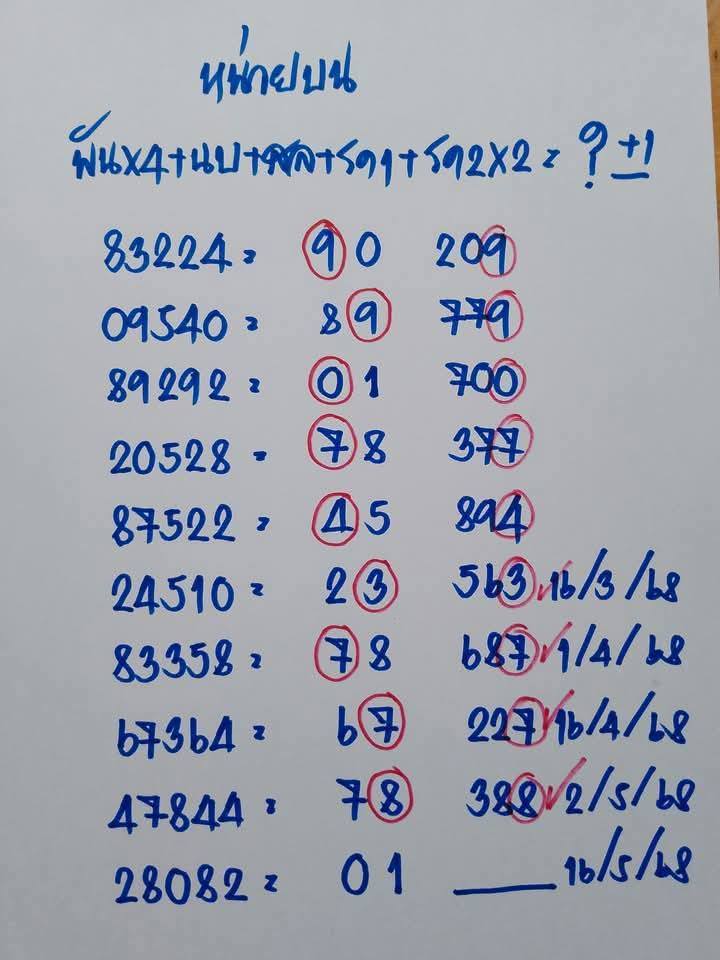 หน่วยบน
พันx4+นบ+นล+รด1+รด2x2= ? +1
83224= 90 209
09540= 89 779
89292= 01 700
20528= 78 377
87522= 45 894
24510= 23 563 ✓16/3/68
83358= 78 687 ✓1/4/68
67364= 67 227 ✓16/4/68
47844= 78 388 ✓2/5/68
28082= 01 ___ 16/5/68